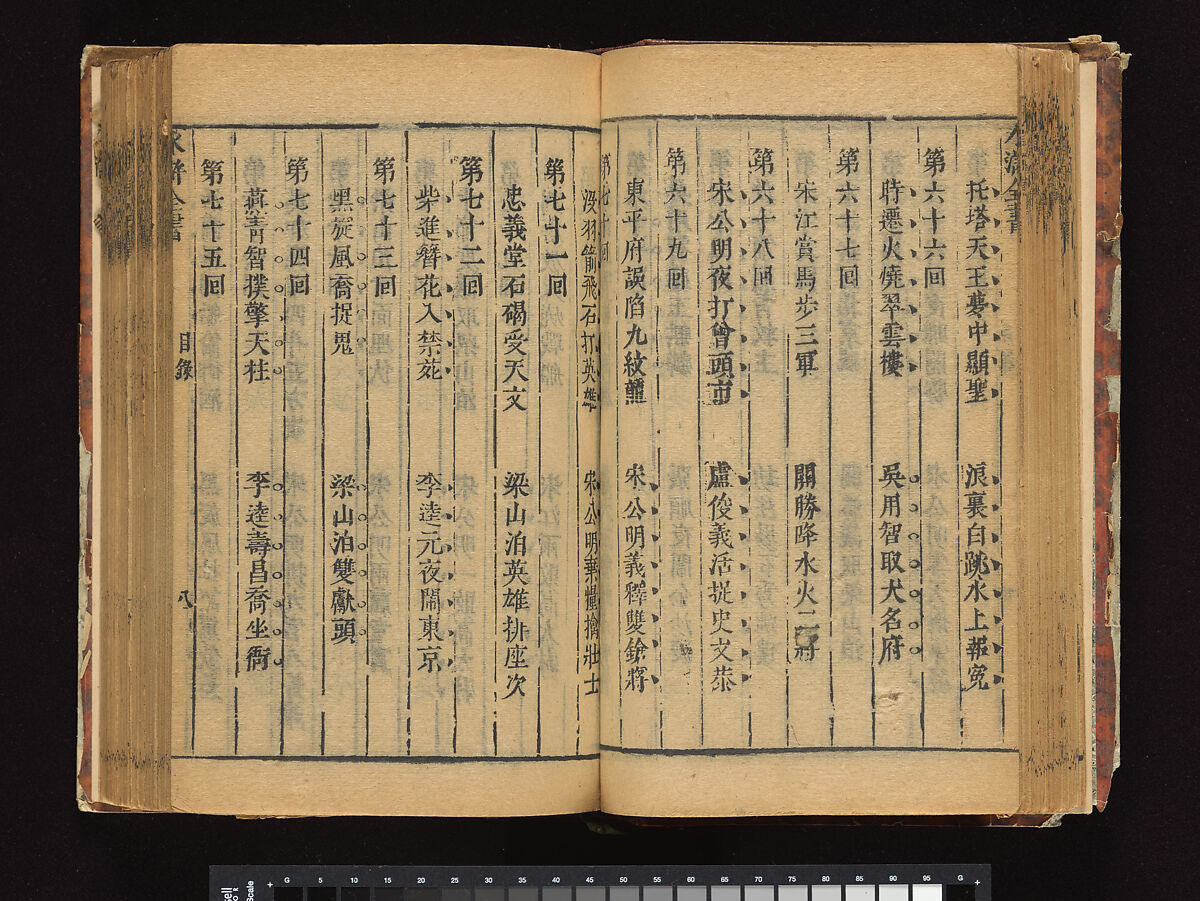 托塔天王夢中顯聖 浪裏白跳水上報冤
第六十六回
時遷火燒翠雲樓 吳用智取大名府
第六十七回
宋江賞馬步三軍 關勝降水火二將
第六十八回
宋公明夜打曾頭市 盧俊義活捉史文恭
第六十九回
東平府誤陷九紋龍 宋公明義釋雙鎗將
第七十回
沒羽箭飛石打英雄 宋公明棄糧擒壯士
第七十一回
忠義堂石碣受天文 梁山泊英雄排座次
第七十二回
柴進簪花入禁苑 李逵元夜鬧東京
第七十三回
黑旋風喬捉鬼 梁山泊雙獻頭
第七十四回
燕青智撲擎天柱 李逵壽昌喬坐衙
第七十五回
水滸全書 目錄 八
G 5 10 15 20 25 30 35 40 45 50 55 60 65 70 75 80 85 90 95 G